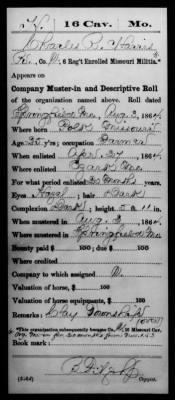 H. | 16 Cav. | Mo.
Charles B. Harris
Co. M, 6 Reg't Enrolled Missouri Militia.*
Appears on
Company Muster-in and Descriptive Roll
of the organization named above. Roll dated
Springfield Mo., Aug. 3, 1864.
Where born Polk Missouri
Age yrs; occupation Farmer
When enlisted Apr. 27, 1864.
Where enlisted Ozark Mo.
For what period enlisted 20 months years.
Eyes Hazel; hair Dark
Complexion Dark; height 5 ft. 11 in.
When mustered in Aug. 3, 1864.
Where mustered in Springfield Mo.
Bounty paid $ 100; due $ 100
Where credited
Company to which assigned M.
Valuation of horse, $ 100
Valuation of horse equipments, $ 100
Remarks: Clay Township
*This organization subsequently became Co. 16 Missouri Cav.
Org. for 20 months from Nov. 1, 1863
Book mark:
(343d)
Copyist.